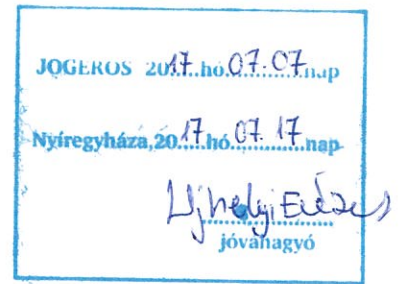 JOGERŐS 2017. hó 07.07. nap
Nyíregyháza, 2017. hó 07.17. nap
Ujhelyi
jóváhagyó